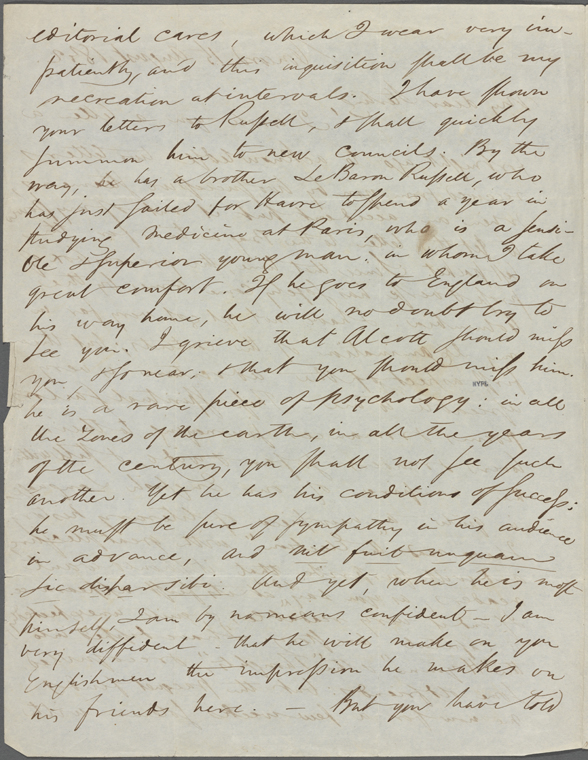 editorial cares, which I wear very im-
patiently, and this inquisition shall be my
recreation at intervals. I have shown
your letters to Russell, & shall quickly
summon him to new councils. By the
way, he has a brother LeBaron Russell, who
has just sailed for Havre to spend a year in
studying medicine at Paris, who is a sensi-
ble & superior young man: in whom I take
great comfort. If he goes to England on
his way home, he will no doubt try to
see you. I grieve that Alcott should miss
you, & so near, & that you should miss him.
NYPL
he is a rare piece of psychology: in all
the zones of the earth, in all the years
of the century, you shall not see such
another. Yet he has his conditions of success:
he must be sure of sympathy in his audience
in advance, and nil fuit unquam
sic dispar sibi. And yet, when he is most
himself, I am by no means confident – I am
very diffident – that he will make on you
Englishmen the impression he makes on
his friends here. — But you have told